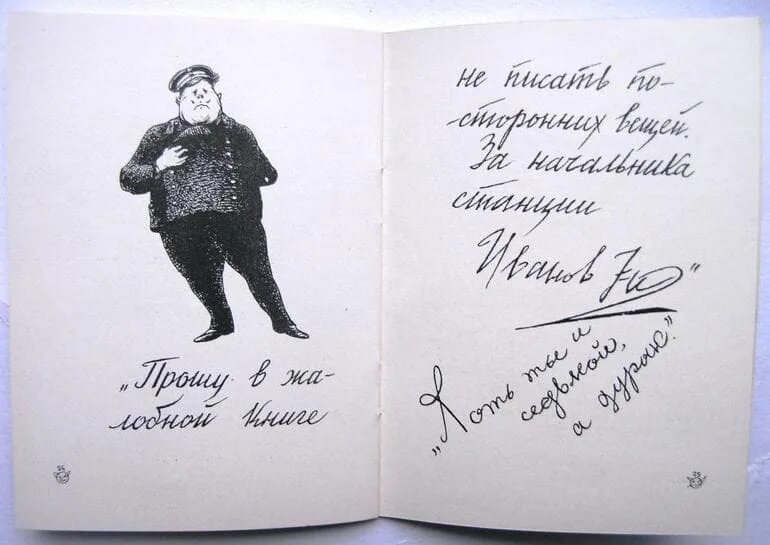 „Прошу в жа-
лобной книге
не писать по-
сторонних вещей.
За начальника
станции
Иванов 7й"
„Хоть ты и
седьмой,
а дурак."
25